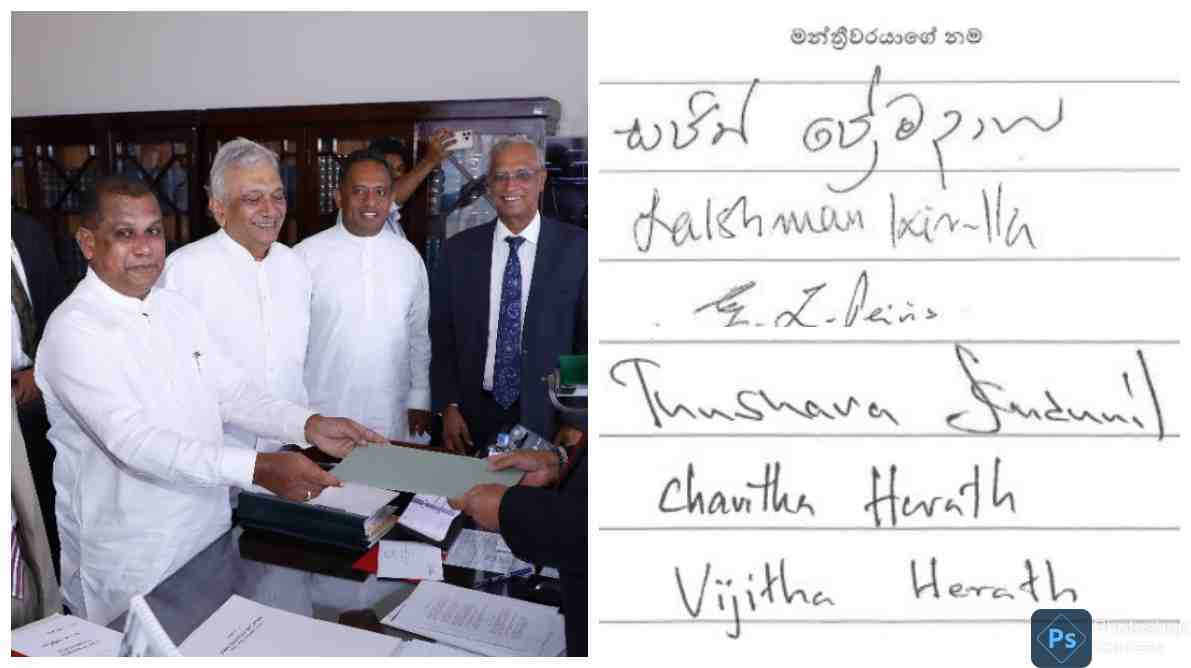 මන්ත්‍රීවරයාගේ නම
සජිත් ප්‍රේමදාස
Lakshman Kiriella
G. L. Peiris
Thushara Indunil
Charitha Herath
Vijitha Herath
Ps
Photoshop